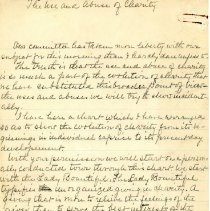 The Use and Abuse of Charity
Your committee has taken more liberty with our
subject for this morning than I hardly dare expect to.
The Truth is that the use and abuse of charity
is so much a part of the evolution of charity that
we have substituted this broader point of view
the uses and abuses we will try to show incident-
ally.
I have here a chart which I have arranged
so as to show the evolution of charity from its be-
ginnings in individual caprice to its present day
development.
With your permission we will start on a person-
ally conducted tour through this chart. We start
with the Lady Bountiful. The Lady Bountiful
typifies the unorganized giving in charity. A
giving that is more to relieve the feelings of the
giver than to serve the best interests of the